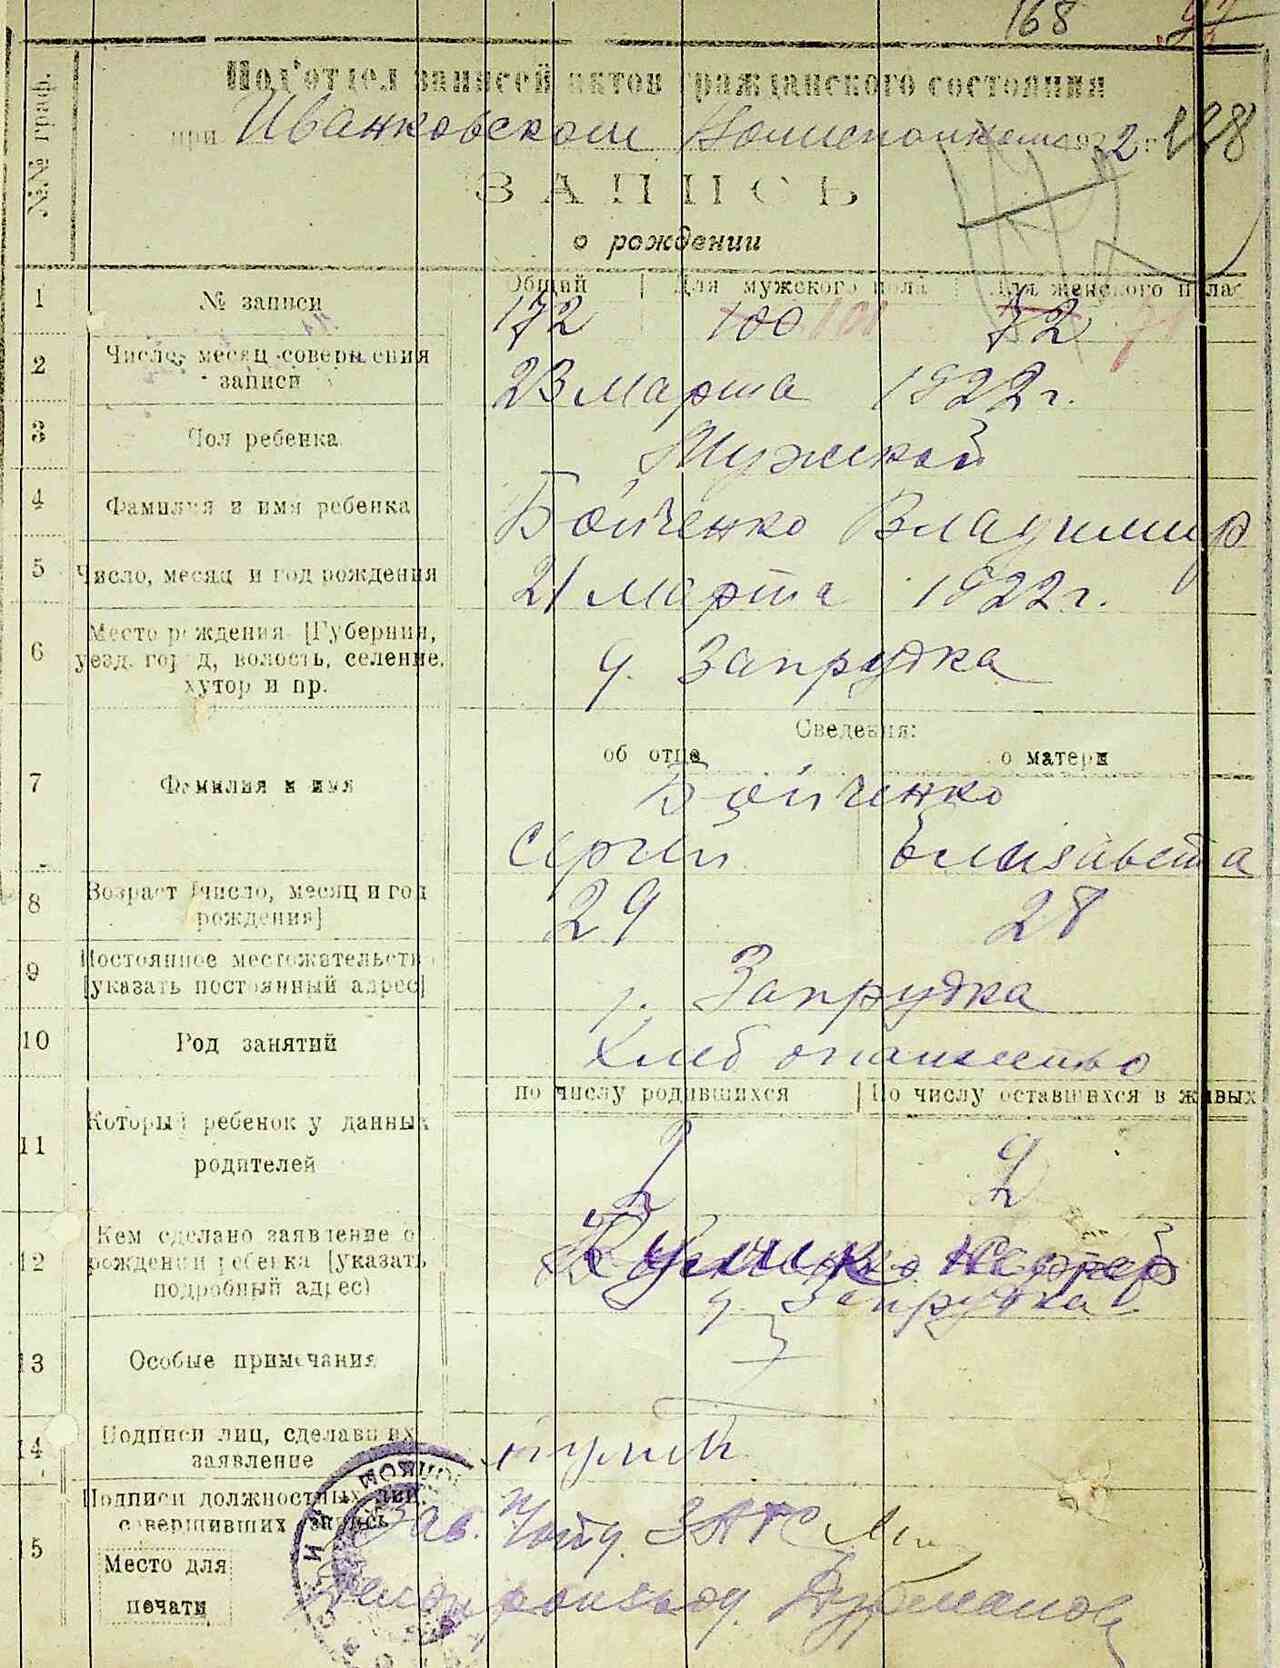 168
№№ граф.
Под'отдел записей актов гражданского состояния
при Иванковском Волисполкоме 1922 г. 128
ЗАПИСЬ
о рождении
Общий Для мужского пола Для женского пола
1 № записи 172 100 101 72 71
2 Число, месяц совершения записи 23 марта 1922 г.
3 Пол ребенка Мужской
4 Фамилия и имя ребенка Бойченко Владимир
5 Число, месяц и год рождения 21 марта 1922 г.
6 Место рождения [Губерния,
уезд, город, волость, селение,
хутор и пр. д. Запрудка
Сведения:
об отце о матери
7 Фамилия и имя Бойченко
Сергий Елизавета
8 Возраст [число, месяц и год
рождения] 29 28
9 Постоянное местожательство
[указать постоянный адрес] д. Запрудка
10 Род занятий Хлебопашество
по числу родившихся По числу оставшихся в живых
11 Который ребенок у данных
родителей 2 2
12 Кем сделано заявление о
рождении ребенка [указать
подробный адрес) д. Запрудка
13 Особые примечания
14 Подписи лиц, сделавших
заявление
15 Подписи должностных лиц,
совершивших запись Зав. Подд. ЗАГС
Место для
печати Делопроизвод.